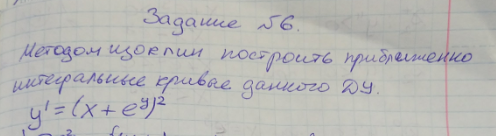 Задание №6.
Методом изоклин построить приближенно
интегральные кривые данного ДУ.
y' = (x + e^y)²